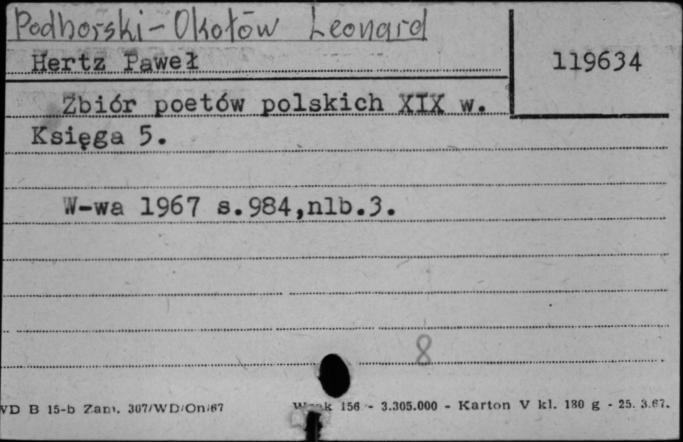 Podhorski-Okołów Leonard
Hertz Paweł
119634
Zbiór poetów polskich XIX w.
Księga 5.
W-wa 1967 s.984,nlb.3.
8
WD B 15-b Zam. 307/WD/On/67
156 - 3.305.000 - Karton V kl. 180 g - 25. 3.67.